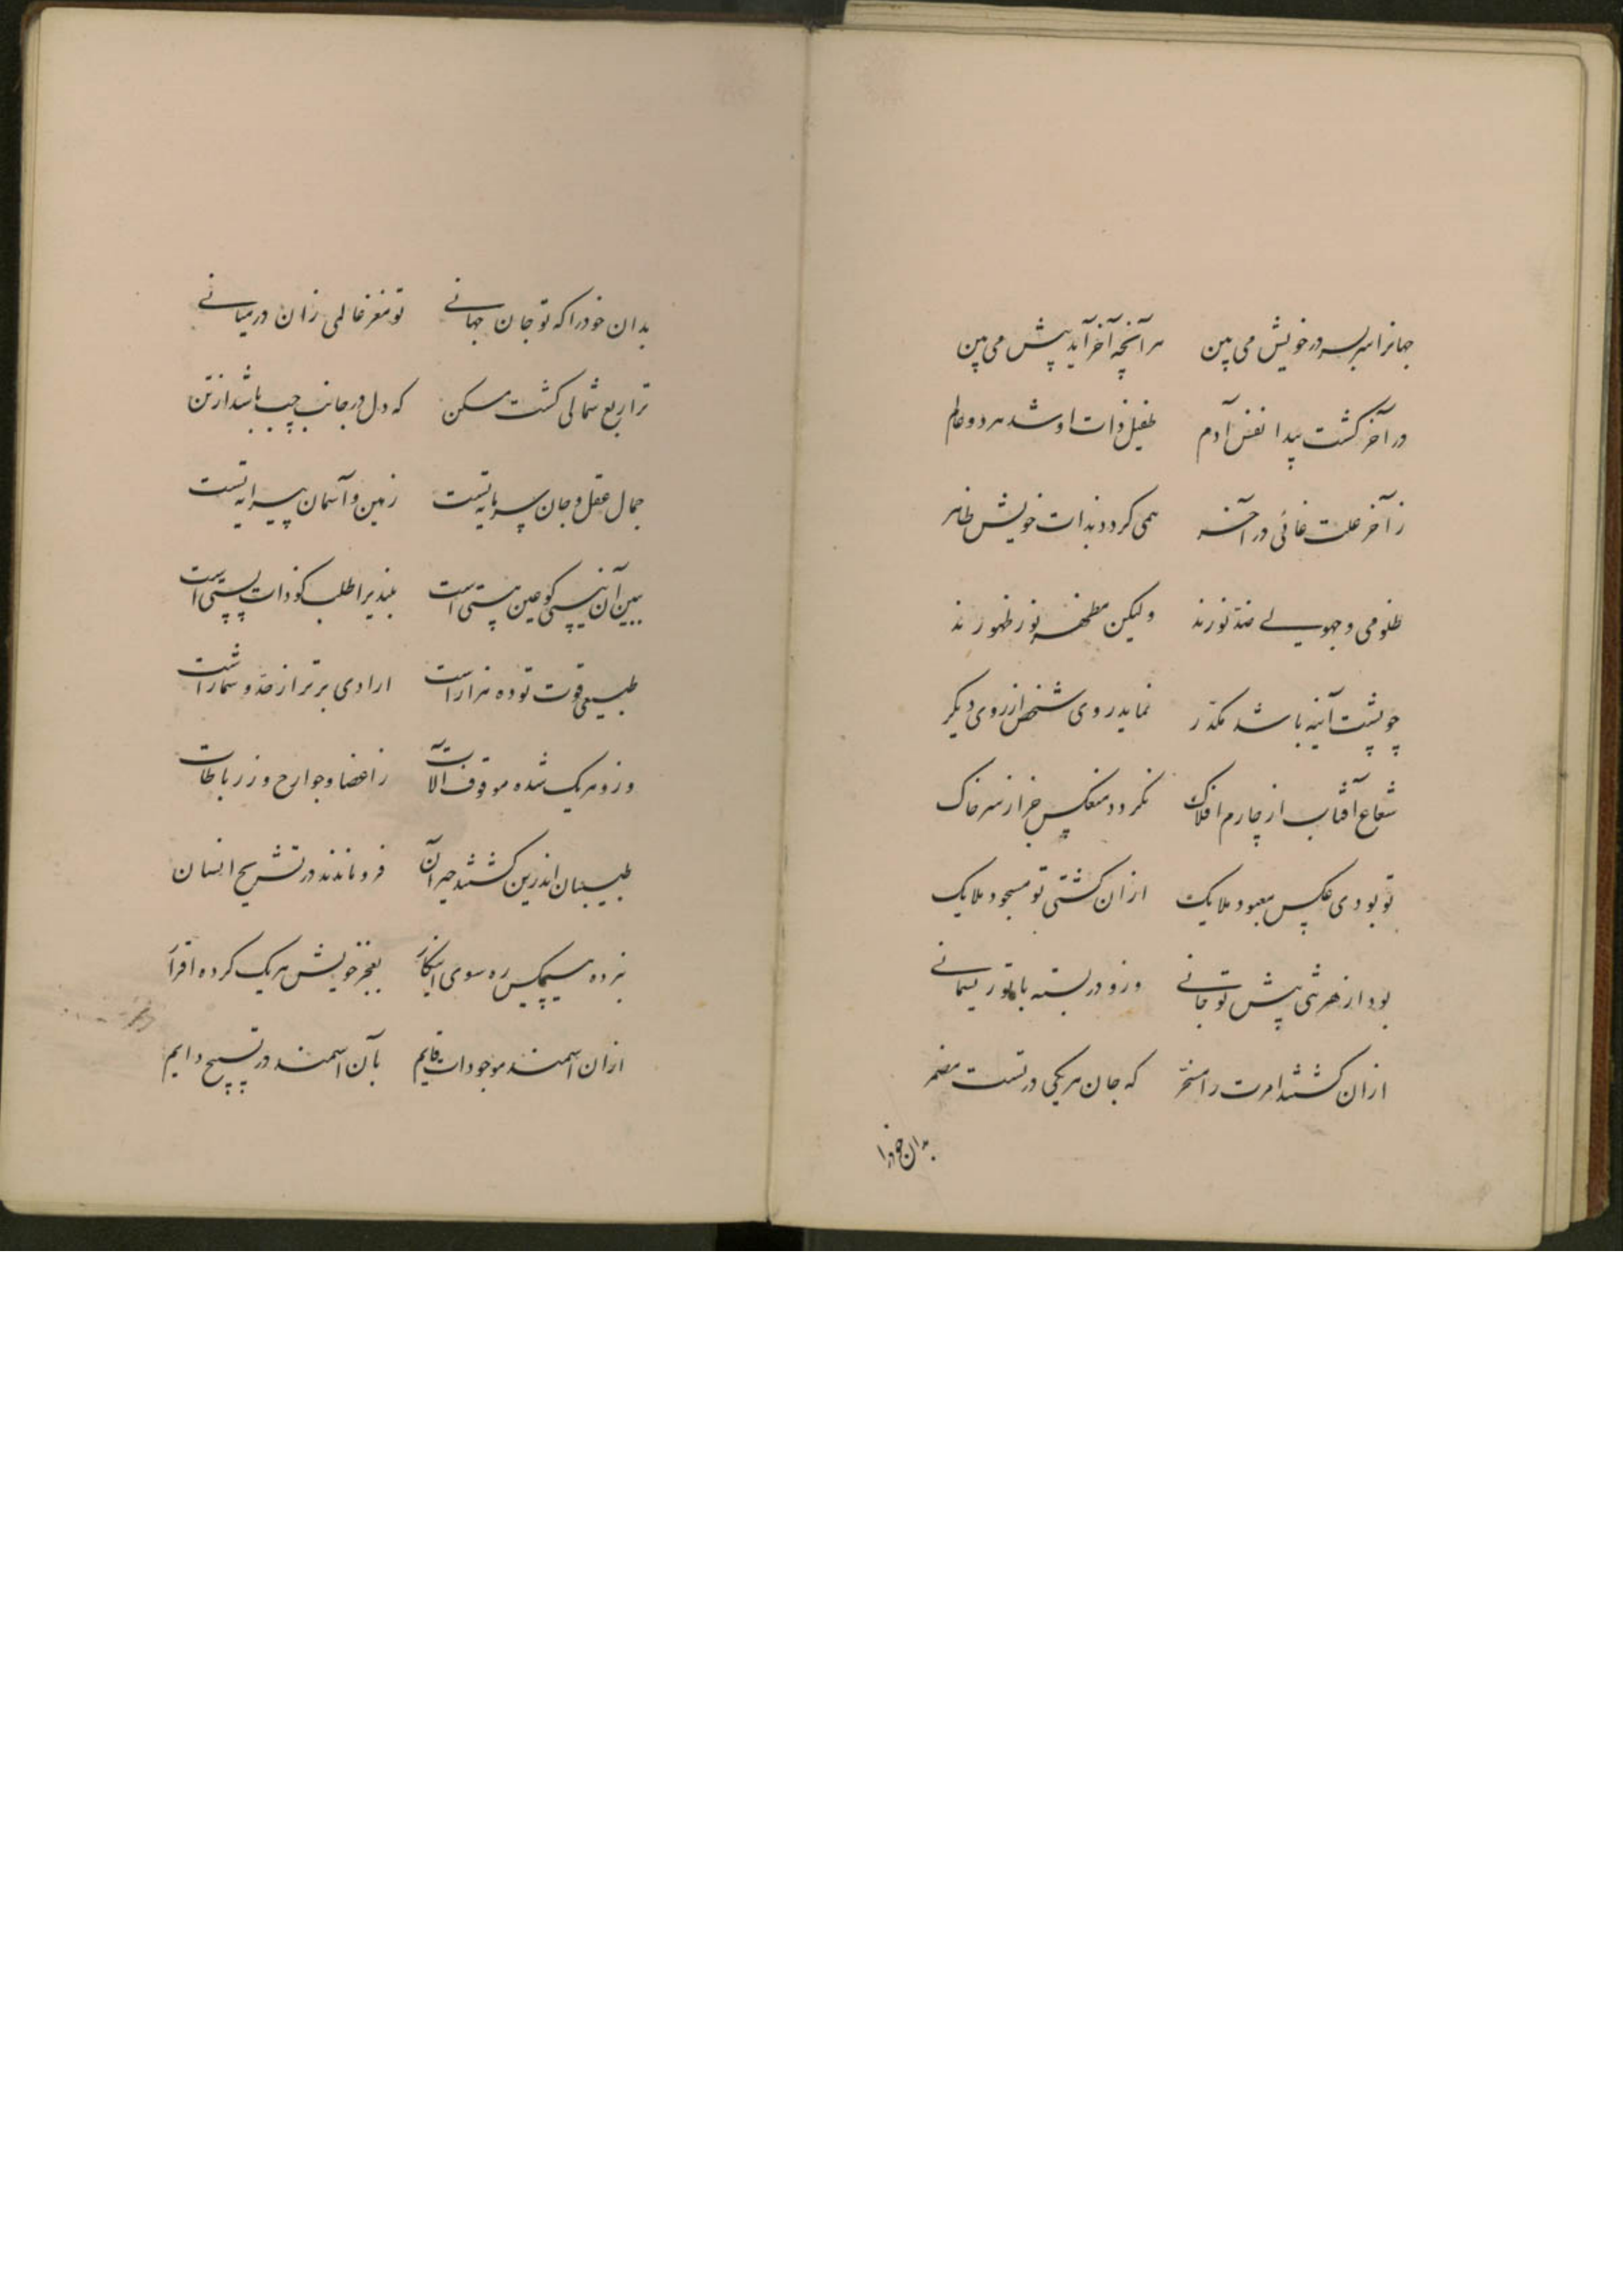 جهانرا سربسر در خویش می بین هر آنچه آخر آید پیش می بین
در آخر گشت پیدا نفس آدم طفیل ذات او شد هر دو عالم
ز آخر علت غائی در آخر همی گردد بذات خویش ظاهر
ظلومی و جهولی ضد نورند ولیکن مظهر نور ظهورند
چو پشت آینه باشد مکدّر نماید روی شخص از روی دیگر
شعاع آفتاب از چارم افلاک نگردد منعکس جز از سر خاک
تو بودی عکس معبود ملایک از ان گشتی تو مسجود ملایک
بود از هر تنی پیش تو جانی وزو در بسته با تو ریسمانی
ازان گشتند امرت را مسخّر که جان هر یکی در تست مضمر
بدان خود را
بدان خود را که تو جان جهانی تو مغز عالمی زان در میانی
ترا ربع شمالی گشت مسکن که دل در جانب چپ باشد از تن
جهان عقل و جان سرمایه تست زمین و آسمان پیرایه تست
ببین آن نیستی کو عین هستی است بلندی را طلب کو ذات پستی است
طبیعی قوت تو ده هزار است ارادی برتر از حدّ و شمار است
وزو هر یک شده موقوف آلات ز اعضا و جوارح وز رباطات
طبیبان اندرین گشتند حیران فرو ماندند در تشریح انسان
نبرده هیچکس ره سوی این کار بعجز خویش هر یک کرده اقرار
ازان اسمند موجودات قایم بآن اسمند در تسبیح دایم